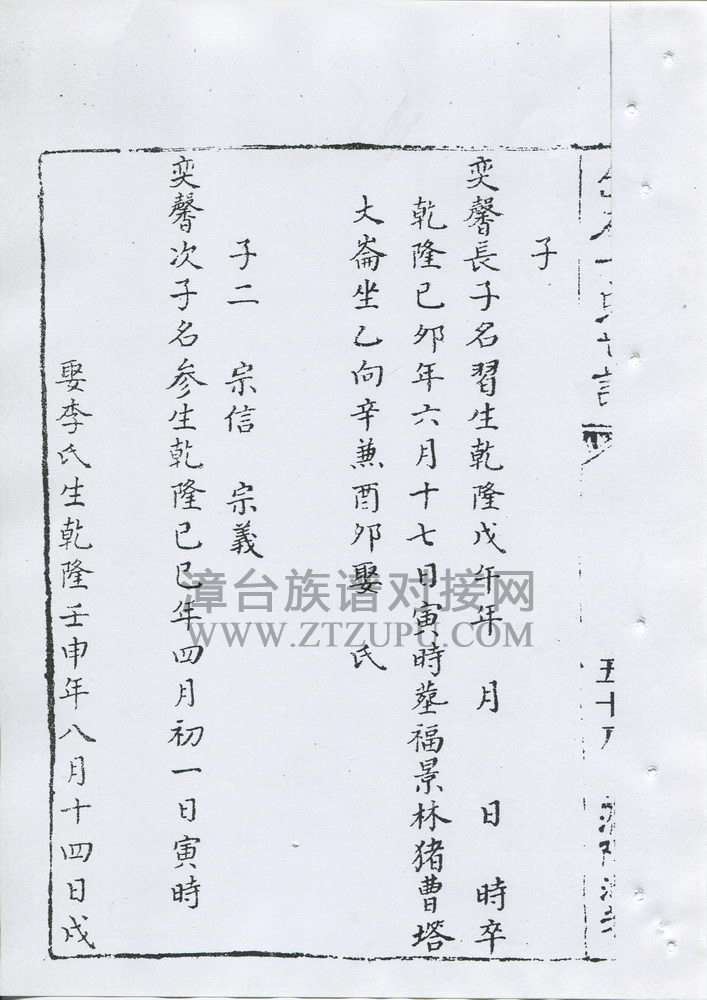 五十
子
奕馨長子名習生乾隆戊午年 月 日 時卒
乾隆己卯年六月十七日寅時塟福景林猪曹塔
大崙坐乙向辛兼酉卯娶 氏
子二 宗信 宗義
奕馨次子名參生乾隆己巳年四月初一日寅時
娶李氏生乾隆壬申年八月十四日戌
漳台族谱对接网
WWW.ZTZUPU.COM